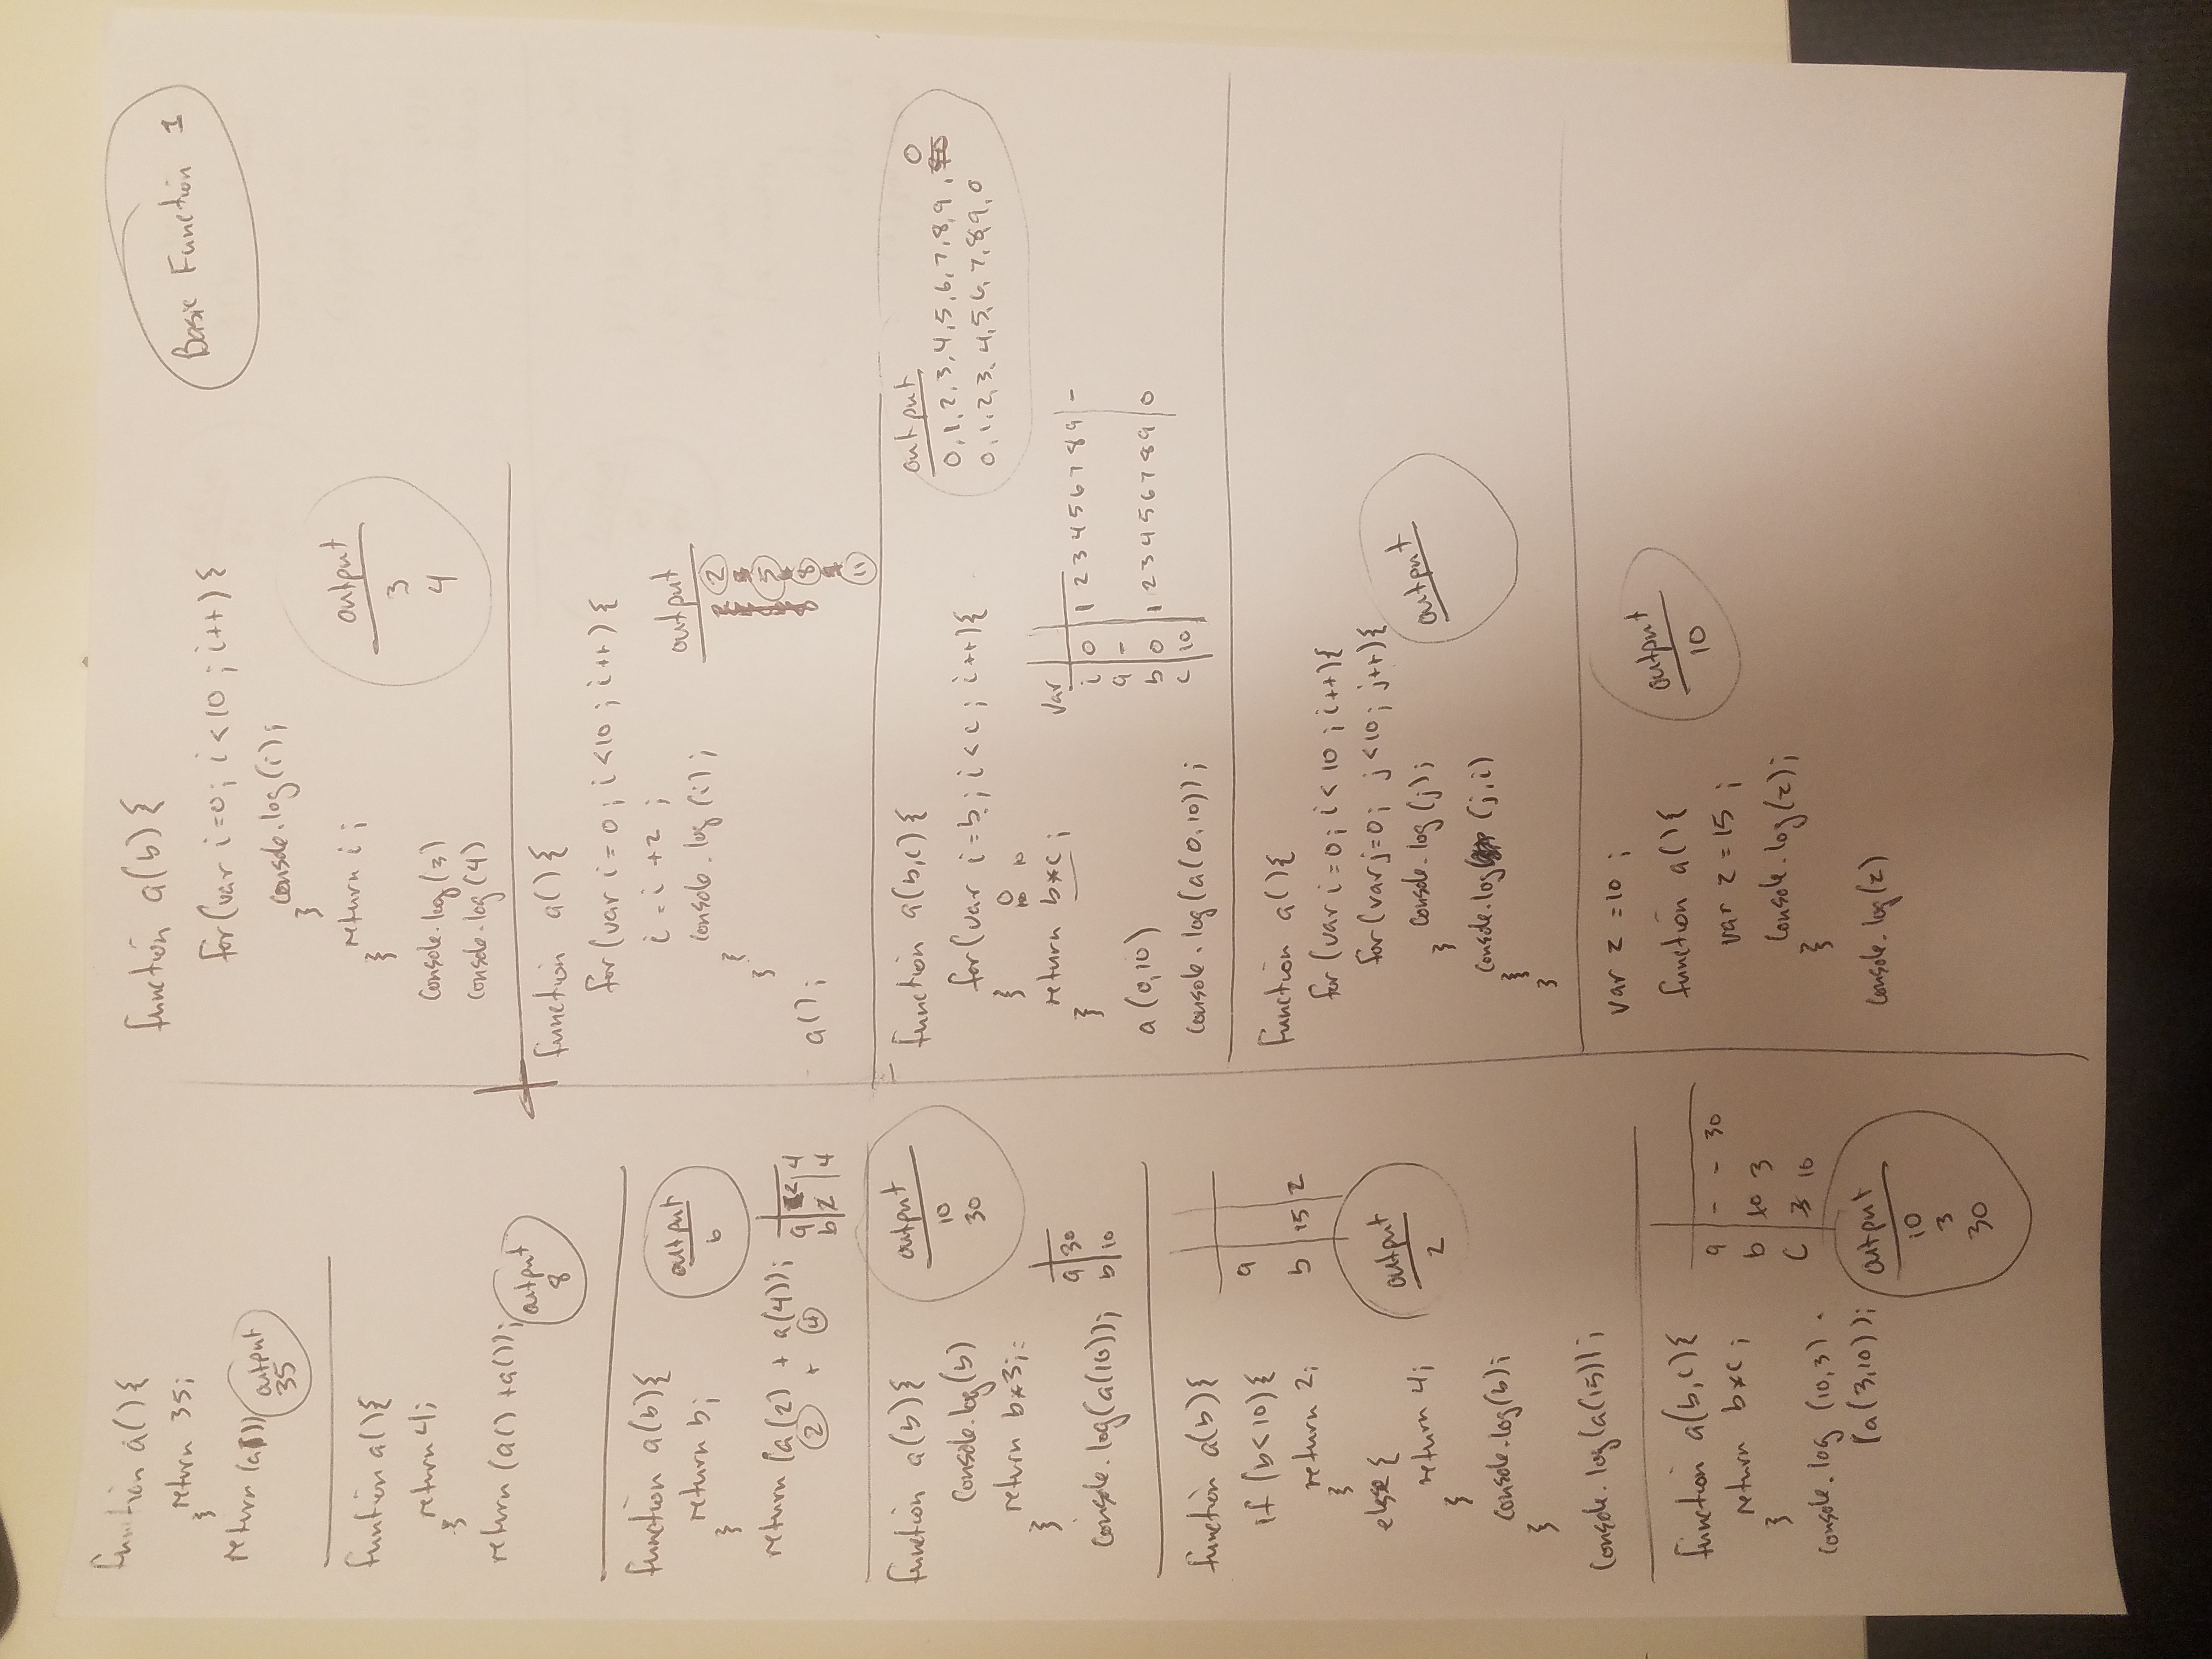 Basic Function 1
function a(){
return 35;
}
return (a())
output
35
funtion a(){
return 4;
}
return (a() + a());
output
8
function a(b){
return b;
}
return (a(2) + a(4));
2 + 4
output
6
a 2 4
b 2 4
function a(b){
console.log(b)
return b*3;
}
console.log(a(10));
output
10
30
a 30
b 10
function a(b){
if (b<10){
return 2;
}
else {
return 4;
}
console.log(b);
}
console.log(a(15));
a
b 15 2
output
2
function a(b,c){
return b*c;
}
console.log (10,3).
(a(3,10));
a - - 30
b 10 3
c 3 10
output
10
3
30
function a(b){
for(var i=0; i<10; i++){
console.log(i);
}
return i;
}
console.log(3)
console.log(4)
output
3
4
function a(){
for(var i=0; i<10; i++){
i = i +2;
console.log(i);
}
}
a();
output
2
5
8
11
function a(b,c){
for(var i=b; i<c; i++){
}
0
10 10
return b*c;
}
a(0,10)
console.log(a(0,10));
output
0
0,1,2,3,4,5,6,7,8,9,
0,1,2,3,4,5,6,7,8,9,0
var
i 0 1 2 3 4 5 6 7 8 9 -
a -
b 0 1 2 3 4 5 6 7 8 9 0
c 10
function a(){
for(var i=0; i<10; i++){
for(var j=0; j<10; j++){
console.log(j);
}
console.log (j,i)
}
}
output
var z =10;
function a(){
var z = 15;
console.log(z);
}
console.log(z)
output
10